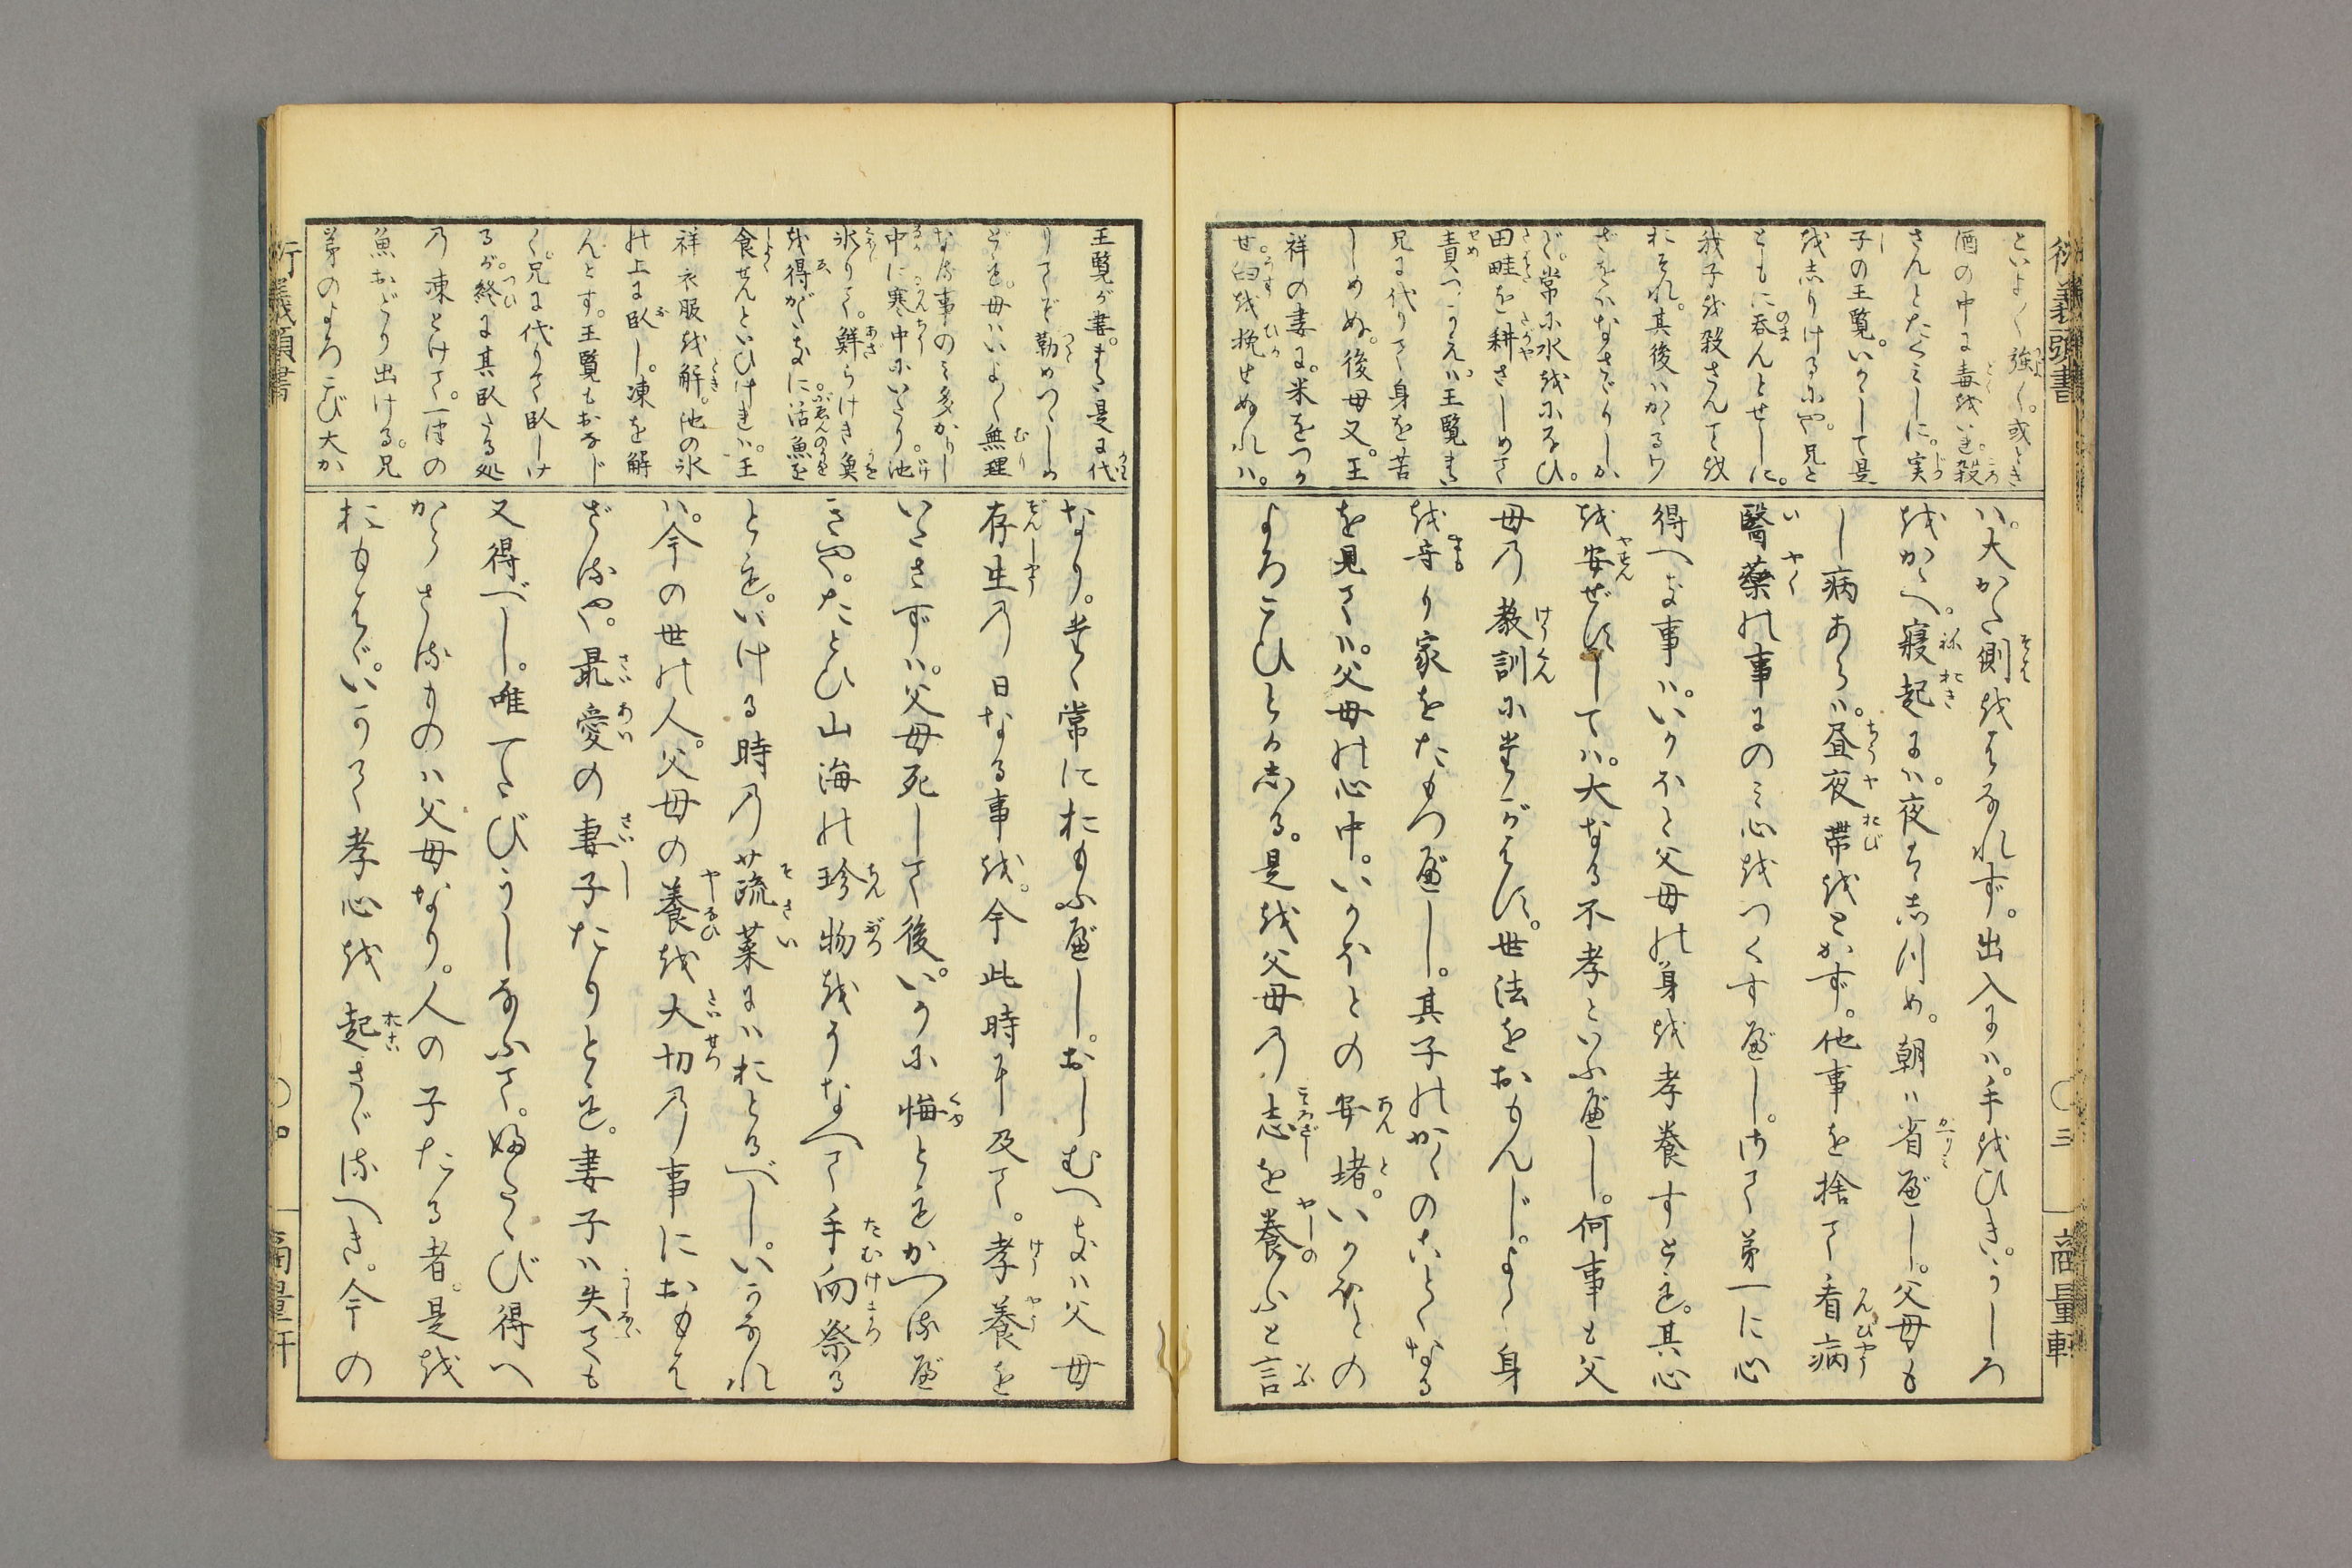 といよ〳〵強く。或とき
酒の中に毒をいれ。殺
さんとたくみしに。実
子の王覧。いかゞして是
を志りけるにや。兄と
ともに呑んとせしに。
我子を殺さんてを
おそれ。其後ハかゝるワ
ざをバなさざりしか
ど。常に水をになひ。
田畦を耕さしめて
責つかへバ王覧また
兄に代りて身を苦
しめぬ。後母又。王
祥の妻に。米をつか
せ。臼を挽せぬれハ。
ハ。大かた側をはなれず。出入にハ。手をひき。うしろ
をかゝへ。寝起にハ。夜は志川め。朝ハ省べし。父母も
し病あらハ。昼夜帯をとかず。他事を捨て看病
醫藥の事にのミ心をつくすべし。扨て第一に心
得へき事ハ。いかほと父母の身を孝養すとも。其心
を安ぜずしてハ。大なる不孝といふべし。何事も父
母乃教訓にたがはず。世法をおもんじ。よく身
を守り家をたもつべし。其子のかくのごとくなる
を見てハ。父母の心中。いかほとの安堵。いかほとの
よろこひとか志る。是を父母乃志を養ふと言
王覧が妻。また是に代
りてぞ勤めつゝしめ
ども。母ハいよ〳〵無理
なる事のミ多かりし
中に寒中にいたり。池
氷りて。鮮らけき魚
を得がたきに活魚を
食せんといひけれバ。王
祥衣服を解。池の氷
の上に臥し。凍を解
んとす。王覧もおなじ
く。兄に代りて臥しけ
るが。終に其臥たる処
乃凍とけて。一隻の
魚おどり出ける。兄
弟のよろこび大か
なり。よく常におもふべし。おしむへきハ父母
存生乃日なる事を。今此時に及て。孝養を
いたさずハ。父母死して後。いかに悔ともかへるべ
きや。たとひ山海の珍物をそなへて手向祭る
とも。いける時乃蔬菜にハおとるべし。いかなれ
ハ。今の世の人。父母の養を大切乃事におもは
ざるや。最愛の妻子たりとも。妻子ハ失ても
又得べし。唯一たびうしなふて。婦たゝび得へ
からさるものハ父母なり。人の子たる者。是を
おもはゞ。いかて孝心を起さゞるへき。今の
行義頭書
○三
商量軒
行義頭書
○四
商量軒